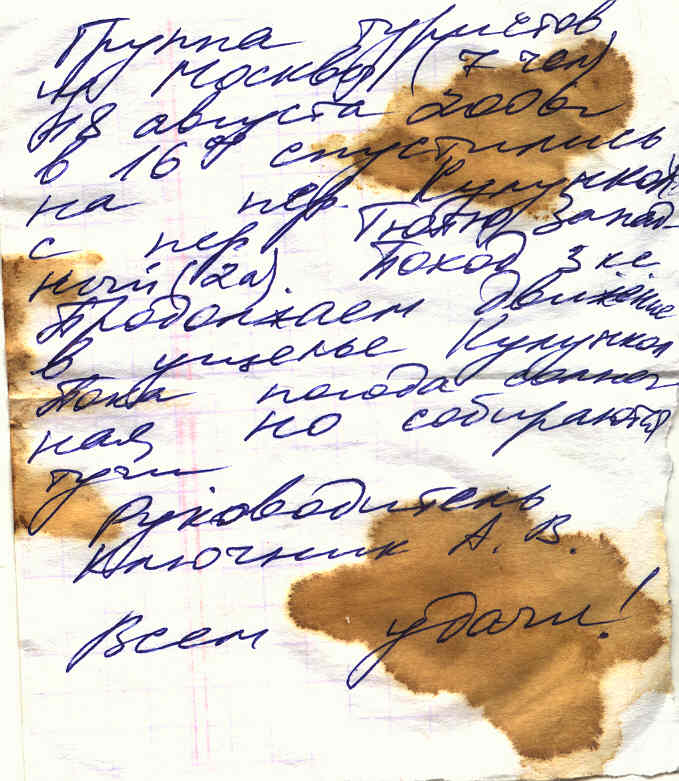 Группа туристов
из Москвы (7 чел)
18 августа 2006г
в 16 спустились
на пер. Кулункол
с пер. Тютю Запад-
ный (2а). Поход 3 кс.
Продолжаем движение
в ущелье Кулункол
Пока погода солнеч
ная, но собираются
тучи
Руководитель
Ключник А. В.
Всем удачи!